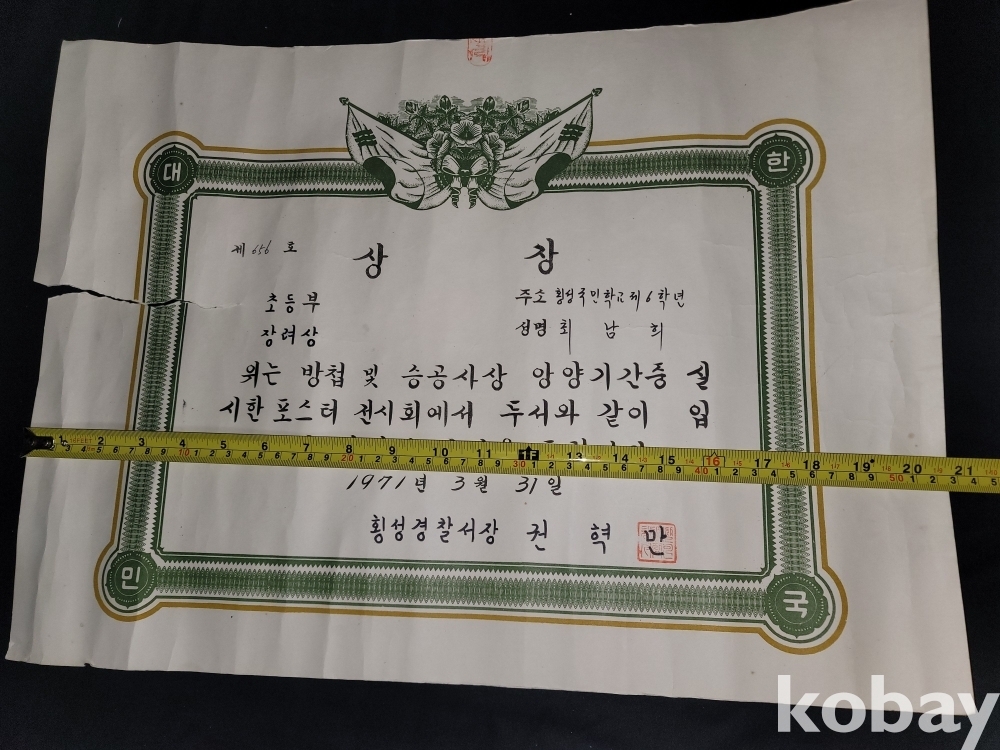 대 한
제 656 호
상 장
초등부 주소 횡성국민학교 제6학년
장려상 성명 최 남 희
위는 방첩 및 승공사상 앙양기간중 실
시한 포스터 전시회에서 두서와 같이 입
1 2 3 4 6 7 8 9 10 11 1F 13 14 15 16 17 18 19 20 21
1971년 3월 31일
횡성경찰서장 권 혁 만
민 국
kobay